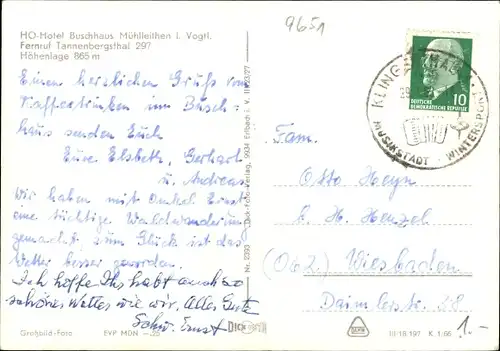 HO-Hotel Buschhaus Mühlleithen i. Vogtl.
Fernruf Tannenbergsthal 297
Höhenlage 865 m
9651
Einen herzlichen Gruß vom
Kaffeetrinken im Busch-
haus senden Euch
Eure Elsbeth, Gerhart
u. Andreas.
Wir haben mit Onkel Ernst
eine tüchtige Waldwanderung
gemacht. Zum Glück ist das
Wetter besser geworden.
Ich hoffe Ihr habt auch so
schönes Wetter wie wir. Alles Gute
Schw. Ernst
Großbild-Foto
EVP MDN
Nr. 2393 Dick-Foto-Verlag, 9934 Erlbach i. V.
DICK
KLINGENTHAL
MUSIKSTADT WINTERSPORT
DEUTSCHE
DEMOKRATISCHE REPUBLIK
10
Fam.
Otto Heyn
b. H. Henzel
Wiesbaden
Daimlerstr. 58
III-18-197 K. 1-66
1.-